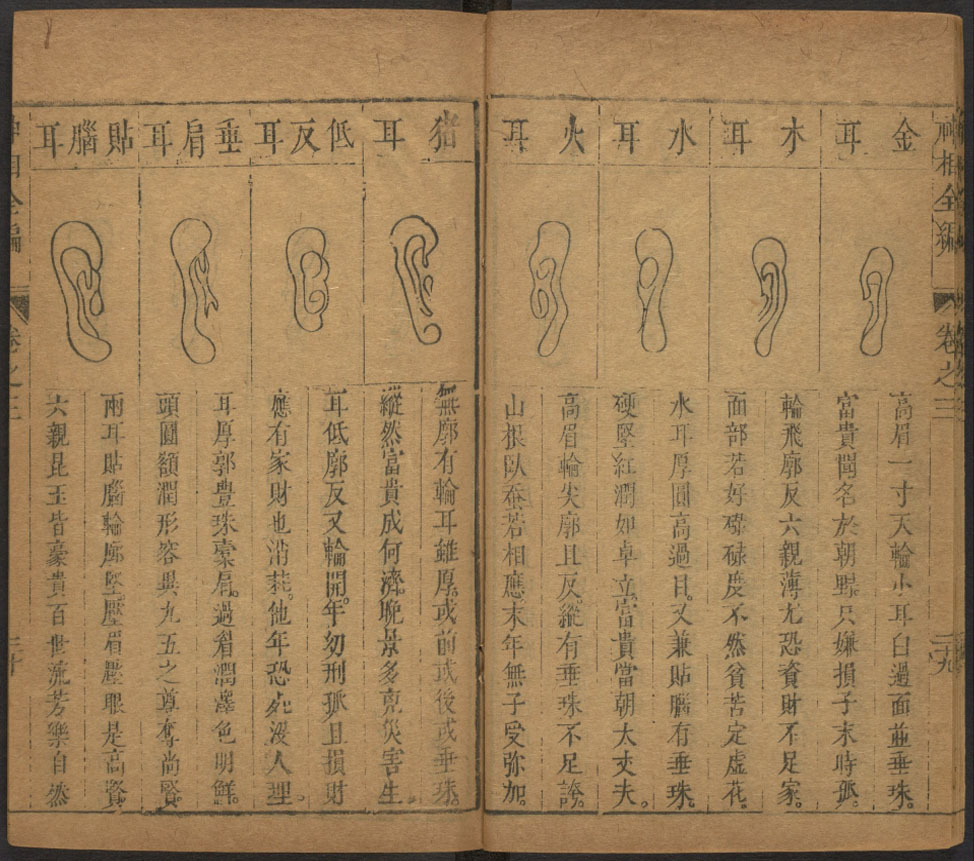 神相全編
卷之三
二十九
金耳
高眉一寸天輪小耳白過面並垂珠。
富貴聞名於朝野。只嫌損子末時孤。
木耳
輪飛廓反六親薄尤恐資財不足家。
面部若好碌碌度不然貧苦定虛花。
水耳
水耳厚圓高過目。又兼貼腦有垂珠。
硬堅紅潤如卓立。富貴當朝大丈夫。
火耳
高眉輪尖廓且反縱有垂珠不足誇。
山根臥蚕若相應末年無子受弥加。
猪耳
無廓有輪耳雖厚。或前或後或垂珠。
縱然富貴成何濟。晩景多 災害生
低反耳
耳低廓反又輪開。年幼刑孤且損財
應有家財也消 。他年恐死沒人埋。
垂肩耳
耳厚郭豊珠 肩。過眉潤澤色明鮮。
頭圓額濶形容異九五之尊奪尚賢。
貼腦耳
兩耳貼腦輪廓堅壓眉壓眼是高賢
六親昆玉皆豪貴百世流芳樂自然
全編
卷之三
三十